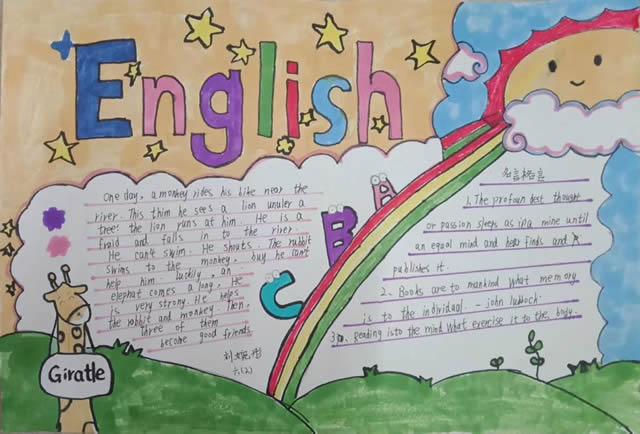 English
One day, a monkey rides his bike near the
river. This thim he sees a lion unuler a
tree. the lion runs at him. He is a
fraid and falls in to the river.
He can't swim. He shouts. The rabbit
swims to the monkey, buy he can't
help him luckily, an
elephat comes a long, He
is very strong. He helps
the rabbit and monkey. Then,
three of them
become good friends
六(2)
A
B
C
Giratle
名言格言
1. The profoun dest thought
or passion sleeps as in a mine until
an eqoal mind and finds and
publishes it.
2. Books are to mankind what memory
is to the individual. - john lubbock.
3. Reading is to the mind what exercise it to the body.